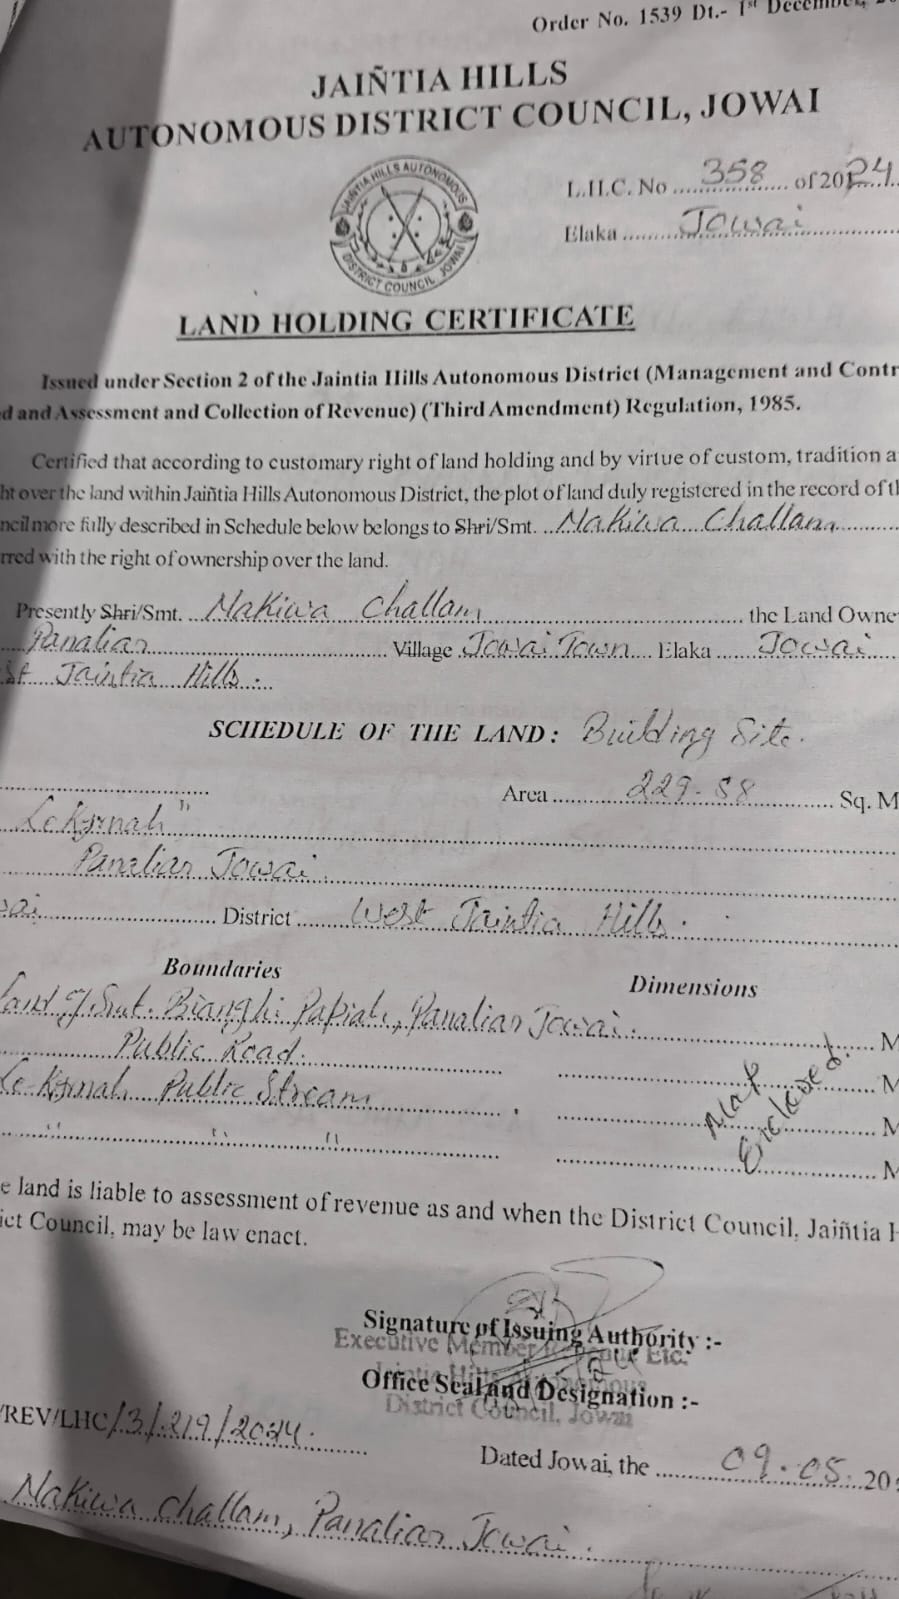 Order No. 1539 Dt.- 1st December, 20
JAIÑTIA HILLS
AUTONOMOUS DISTRICT COUNCIL, JOWAI
JAINTIA HILLS AUTONOMOUS
DISTRICT COUNCIL, JOWAI
L.H.C. No ..... 358 ..... of 2024.
Elaka ..... Jowai .....
LAND HOLDING CERTIFICATE
Issued under Section 2 of the Jaintia Hills Autonomous District (Management and Contr
d and Assessment and Collection of Revenue) (Third Amendment) Regulation, 1985.
Certified that according to customary right of land holding and by virtue of custom, tradition a
ht over the land within Jaiñtia Hills Autonomous District, the plot of land duly registered in the record of th
ncil more fully described in Schedule below belongs to Shri/Smt. Nakiwa Challam
rred with the right of ownership over the land.
Presently Shri/Smt. Nakiwa Challam ..... the Land Owne
Panaliar ..... Village Jowai Town Elaka ..... Jowai
st Jaintia Hills.
SCHEDULE OF THE LAND : Building Site.
Area ..... 229.58 ..... Sq. M
Panaliar Jowai
ai ..... District ..... West Jaintia Hills.
Boundaries Dimensions
Land of Smt. Panaliar Jowai. ..... M
Public Road. ..... M
Public Stream ..... M
" " " ..... M
Map Enclosed.
e land is liable to assessment of revenue as and when the District Council, Jaiñtia H
ict Council, may be law enact.
Signature of Issuing Authority :-
Executive Member Etc.
Office Seal and Designation :-
Jaintia Hills Autonomous
District Council, Jowai
/REV/LHC/3/219/2024.
Dated Jowai, the ..... 09.05.20
Nakiwa Challam, Panaliar Jowai.